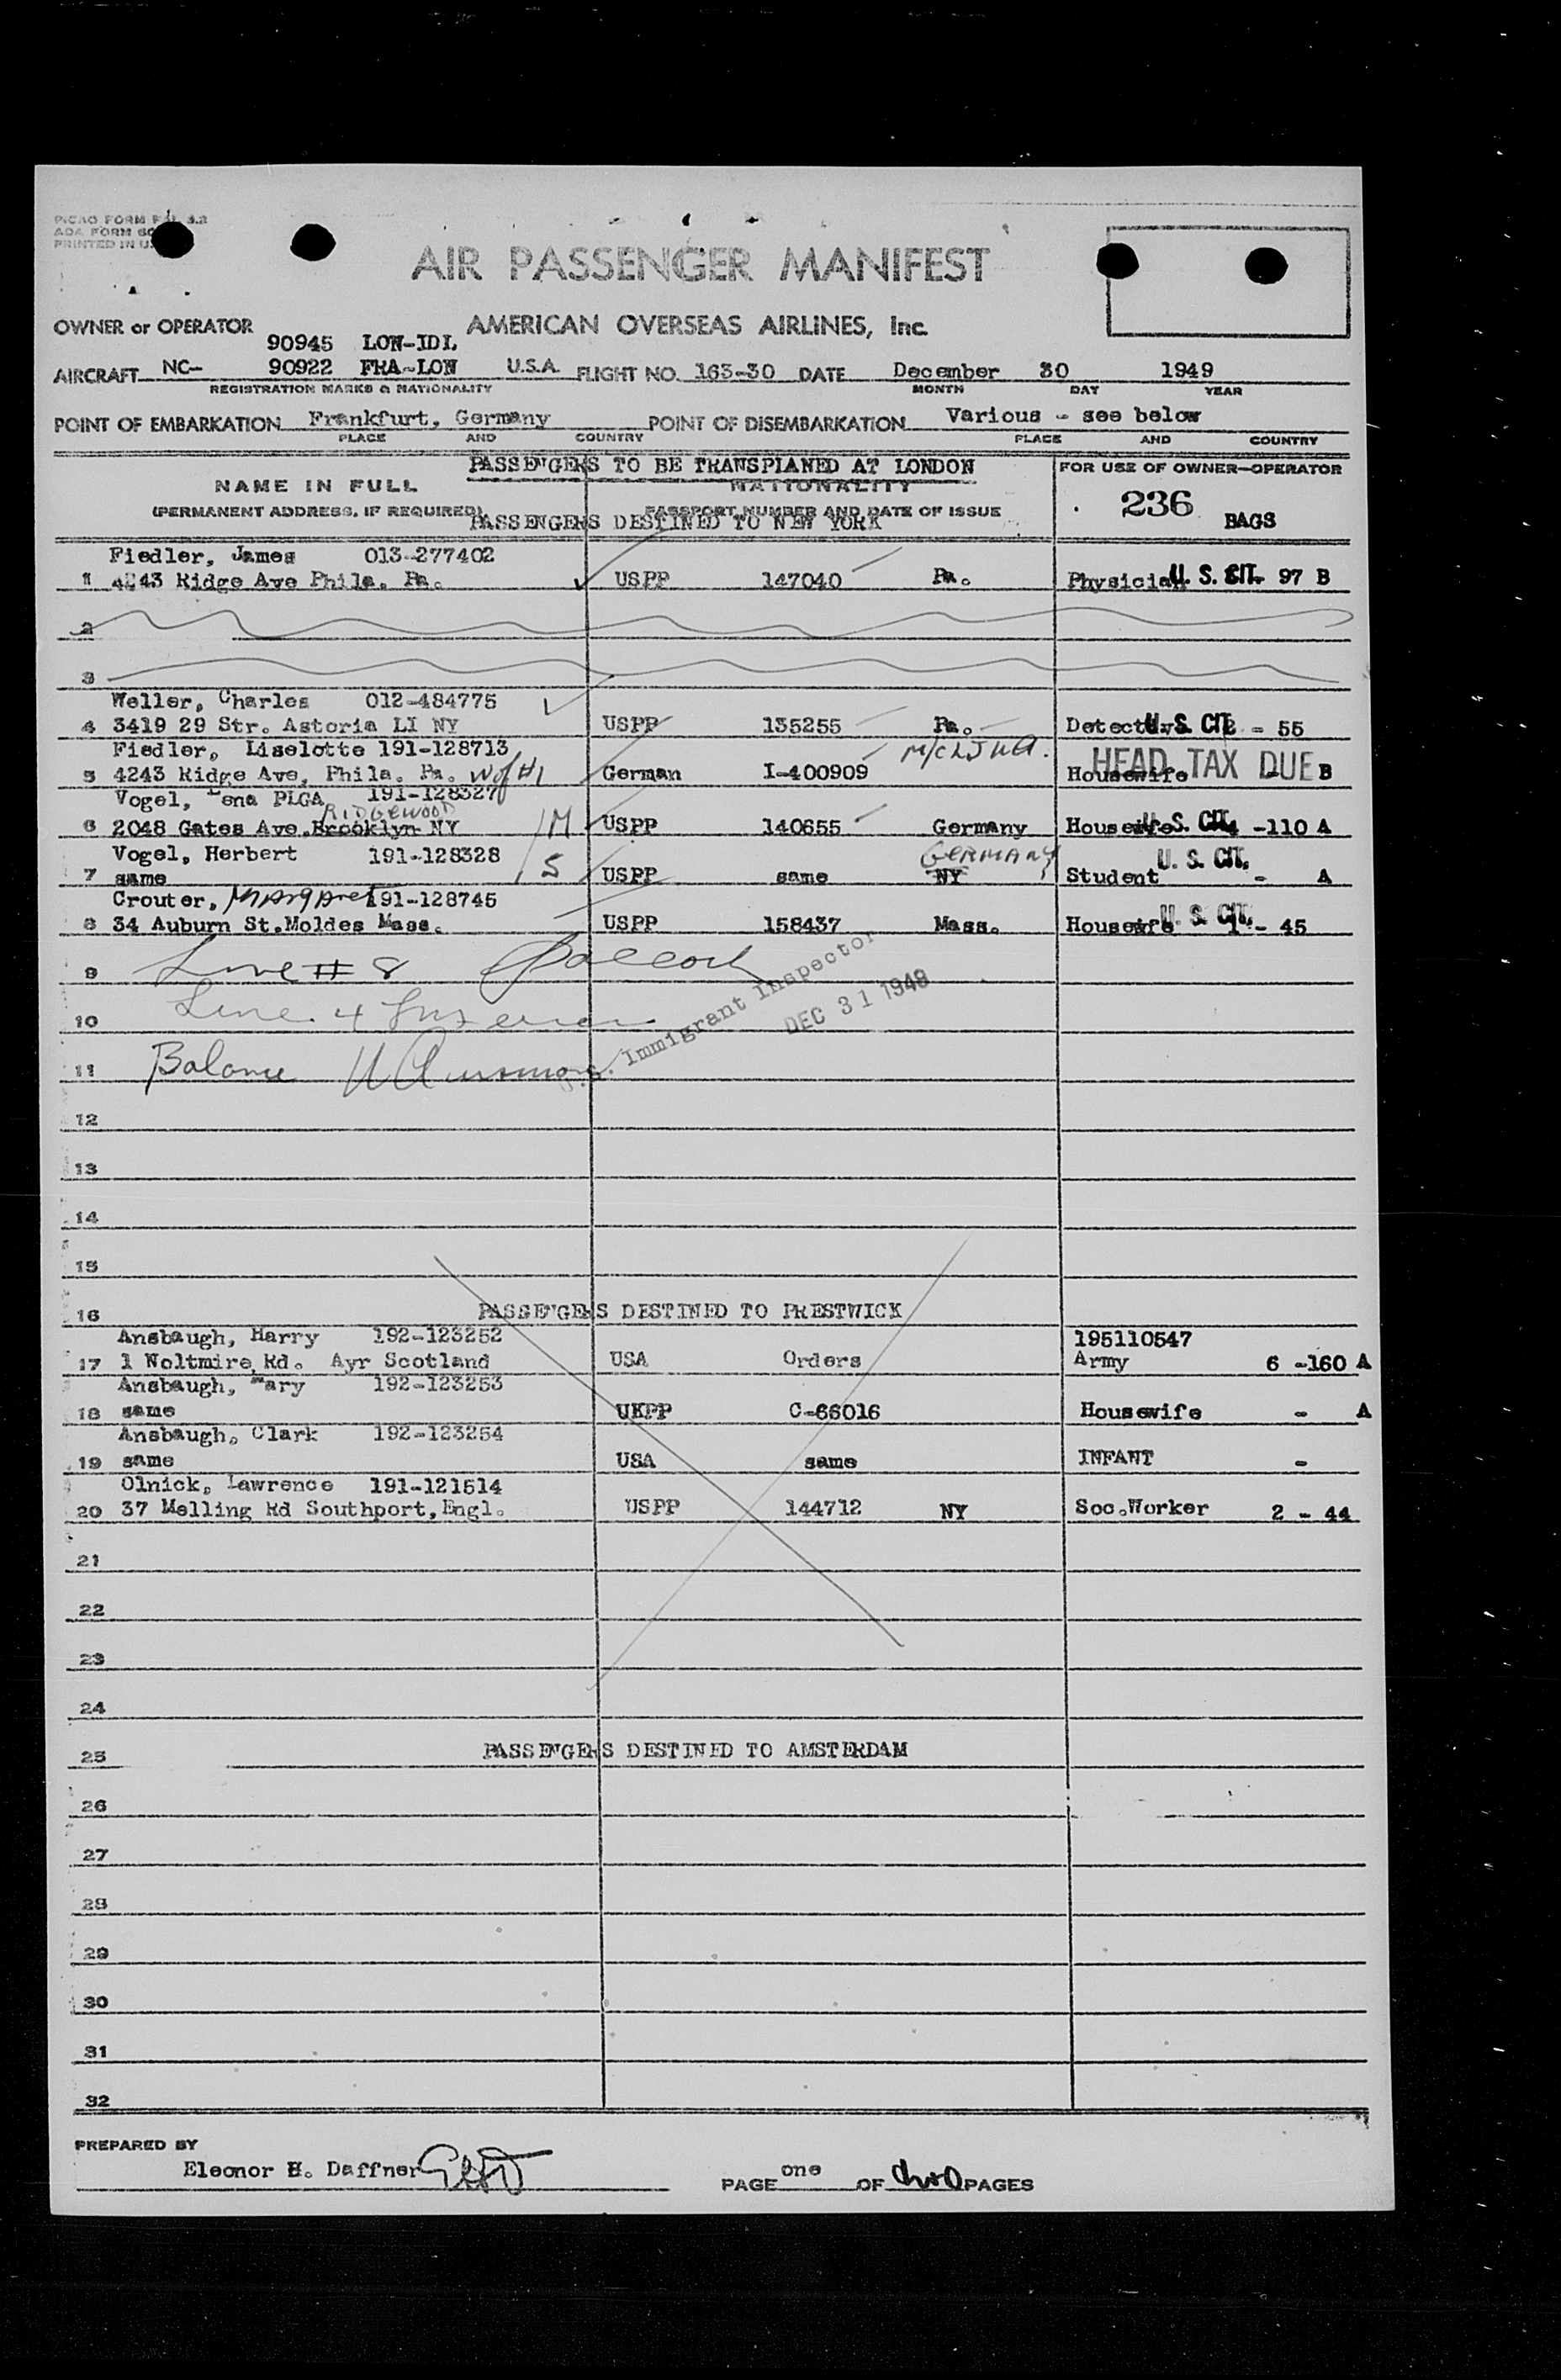 PICAO FORM
AOA FORM
PRINTED IN U.
AIR PASSENGER MANIFEST
OWNER or OPERATOR AMERICAN OVERSEAS AIRLINES, Inc.
90945 LON-IDL
AIRCRAFT NC- 90922 FRA-LON U.S.A. FLIGHT NO. 163-30 DATE December 30 1949
REGISTRATION MARKS & NATIONALITY MONTH DAY YEAR
POINT OF EMBARKATION Frankfurt, Germany POINT OF DISEMBARKATION Various - see below
PLACE AND COUNTRY PLACE AND COUNTRY
PASSENGERS TO BE TRANSPLANED AT LONDON FOR USE OF OWNER-OPERATOR
NAME IN FULL NATIONALITY
(PERMANENT ADDRESS, IF REQUIRED) PASSPORT NUMBER AND DATE OF ISSUE 236 BAGS
PASSENGERS DESTINED TO NEW YORK
Fiedler, James 013-277402
1 4243 Ridge Ave Phila. Pa. USPP 147040 Pa. Physician U. S. CIT. 97 B
2
3
Weller, Charles 012-484775
4 3419 29 Str. Astoria LI NY USPP 135255 Pa. Detective U. S. CIT. - 55
Fiedler, Liselotte 191-128713
5 4243 Ridge Ave, Phila. Pa. W of #1 German I-400909 Housewife HEAD TAX DUE B
Vogel, Lena PLGA 191-128327
RIDGEWOOD
6 2048 Gates Ave. Brooklyn NY M USPP 140655 Germany Housewife U. S. CIT. -110 A
Vogel, Herbert 191-128328 GERMANY
7 same S USPP same NY Student U. S. CIT. - A
Crouter, Margaret 191-128745
8 34 Auburn St.Moldes Mass. USPP 158437 Mass. Housewife U. S. CIT. 1 - 45
9 Line # 8
10 Line 4
11 Balance
Immigrant Inspector
DEC 31 1949
12
13
14
15
16 PASSENGERS DESTINED TO PRESTWICK
Ansbaugh, Harry 192-123252 195110547
17 1 Woltmire Rd. Ayr Scotland USA Orders Army 6 -160 A
Ansbaugh, Mary 192-123253
18 same UKPP C-66016 Housewife - A
Ansbaugh, Clark 192-123254
19 same USA same INFANT -
Olnick, Lawrence 191-121514
20 37 Melling Rd Southport, Engl. USPP 144712 NY Soc.Worker 2 - 44
21
22
23
24
25 PASSENGERS DESTINED TO AMSTERDAM
26
27
28
29
30
31
32
PREPARED BY
Eleonor H. Daffner
PAGE one OF two PAGES